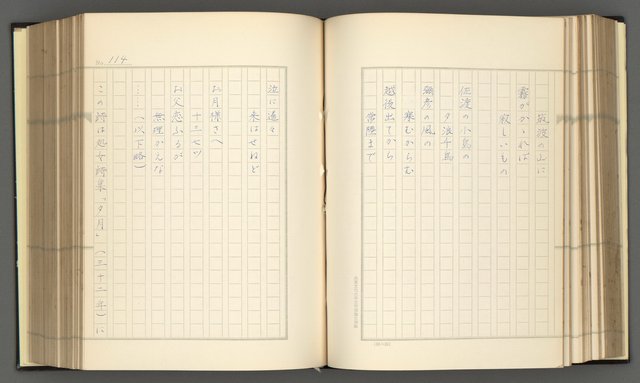 筑波の山に
霧がかゝれば
寂しいもの
佐渡の小島の
夕浪千鳥
弥彦の風の
寒むからむ
越後出てから
常陸まで
泣に遥々
来はせねど
お月様さへ
十三七ツ
お父恋ふるが
無理かんな
……(以下略)
この詩は処女詩集「夕月」(三十二年)に
No. 114